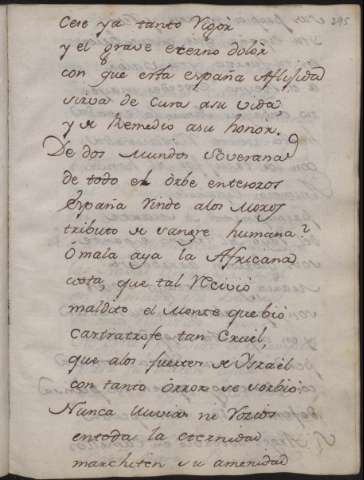 295
Cese ya tanto Vigòr
y el grave eterno dolòr
con que esta españa aflijida
sirva de Cura asu vida
y de Remedio asu honor.
De dos Mundos Soverana
de todo el Orbe enteros
España rinde alos Moros
tributo de sangre humana?
O mala aya la Africana
costa, que tal Vicio
maldito el Monte que bio
Cartratrofe tan Cruèl,
que alos fuertes de Ysraèl
con tanto òrror se sorbiò.
Nunca lluvias ni Rocios
entoda la eternidad
marchiten su amenidad